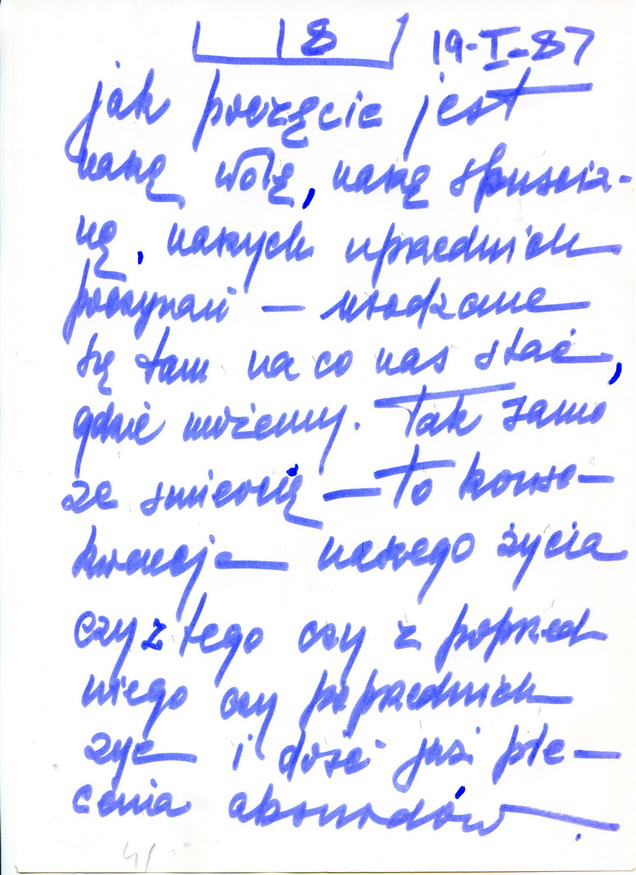 18 19-I-87
jak poczęcie jest
naszą wolą, naszą spuściz-
ną, naszych uprzednich
poczynań — urodzenie
się tam na co nas stać,
gdzie możemy. Tak samo
ze śmiercią — to konse-
kwencja naszego życia
czy z tego czy z poprzed
niego czy poprzednich
żyć i dość już ple-
cenia absurdów.